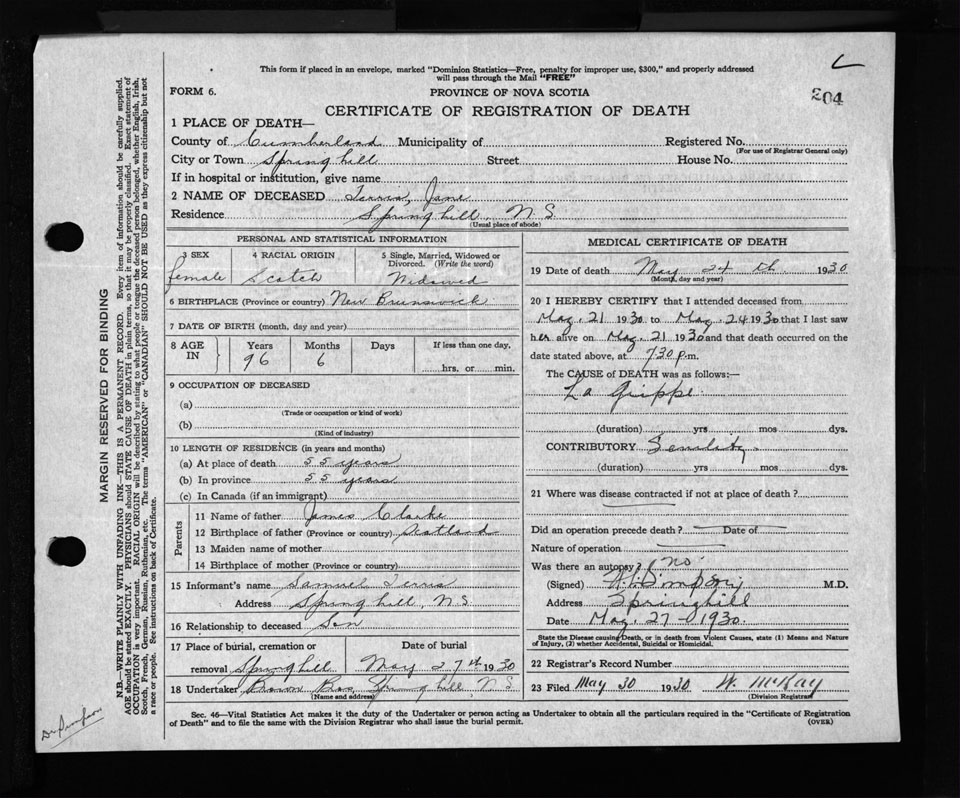 This form if placed in an envelope, marked "Dominion Statistics—Free, penalty for improper use, $300," and properly addressed
will pass through the Mail "FREE"
FORM 6.
PROVINCE OF NOVA SCOTIA
204
CERTIFICATE OF REGISTRATION OF DEATH
1 PLACE OF DEATH—
County of Cumberland Municipality of Registered No.
(For use of Registrar General only)
City or Town Spring hill Street House No.
If in hospital or institution, give name
2 NAME OF DECEASED Terris, Jane
Residence Spring hill, N S
(Usual place of abode)
PERSONAL AND STATISTICAL INFORMATION
3 SEX 4 RACIAL ORIGIN 5 Single, Married, Widowed or
Divorced. (Write the word)
female Scotch Widowed
6 BIRTHPLACE (Province or country) New Brunswick
7 DATE OF BIRTH (month, day and year)
8 AGE IN Years Months Days If less than one day,
96 6 hrs. or min.
9 OCCUPATION OF DECEASED
(a)
(Trade or occupation or kind of work)
(b)
(Kind of industry)
10 LENGTH OF RESIDENCE (in years and months)
(a) At place of death 55 years
(b) In province 55 years
(c) In Canada (if an immigrant)
Parents
11 Name of father James Clarke
12 Birthplace of father (Province or country) Scotland
13 Maiden name of mother
14 Birthplace of mother (Province or country)
15 Informant's name Samuel Terris
Address Spring hill, N S
16 Relationship to deceased Son
17 Place of burial, cremation or Date of burial
removal Spring hill May 27th 1930
18 Undertaker Brown Bros, Spring hill, N S
(Name and address)
MEDICAL CERTIFICATE OF DEATH
19 Date of death May 24 th 1930
(Month, day and year)
20 I HEREBY CERTIFY that I attended deceased from
May. 21 1930 to May. 24 1930 that I last saw
her alive on May. 21 1930 and that death occurred on the
date stated above, at 7 30 p.m.
The CAUSE of DEATH was as follows:—
La Grippe
(duration) yrs mos dys.
CONTRIBUTORY Senility
(duration) yrs mos dys.
21 Where was disease contracted if not at place of death?
Did an operation precede death? Date of
Nature of operation
Was there an autopsy? no
(Signed) Simpson M.D.
Address Springhill
Date May. 27 - 1930.
State the Disease causing Death, or in death from Violent Causes, state (1) Means and Nature
of Injury, (2) whether Accidental, Suicidal or Homicidal.
22 Registrar's Record Number
23 Filed May 30 1930 W. McKay
(Division Registrar)
Sec. 46—Vital Statistics Act makes it the duty of the Undertaker or person acting as Undertaker to obtain all the particulars required in the "Certificate of Registration
of Death" and to file the same with the Division Registrar who shall issue the burial permit. (OVER)
MARGIN RESERVED FOR BINDING
N.B.—WRITE PLAINLY WITH UNFADING INK—THIS IS A PERMANENT RECORD. Every item of information should be carefully supplied.
AGE should be stated EXACTLY. PHYSICIANS should STATE CAUSE OF DEATH in plain terms, so that it may be properly classified. Exact statement of
OCCUPATION is very important. RACIAL ORIGIN will be described by stating to what people or tongue the deceased person belonged, whether English, Irish,
Scotch, French, German, Russian, Ruthenian, etc. The terms "AMERICAN" or "CANADIAN" SHOULD NOT BE USED as they express citizenship but not
a race or people. See instructions on back of Certificate.
Dr Simpson